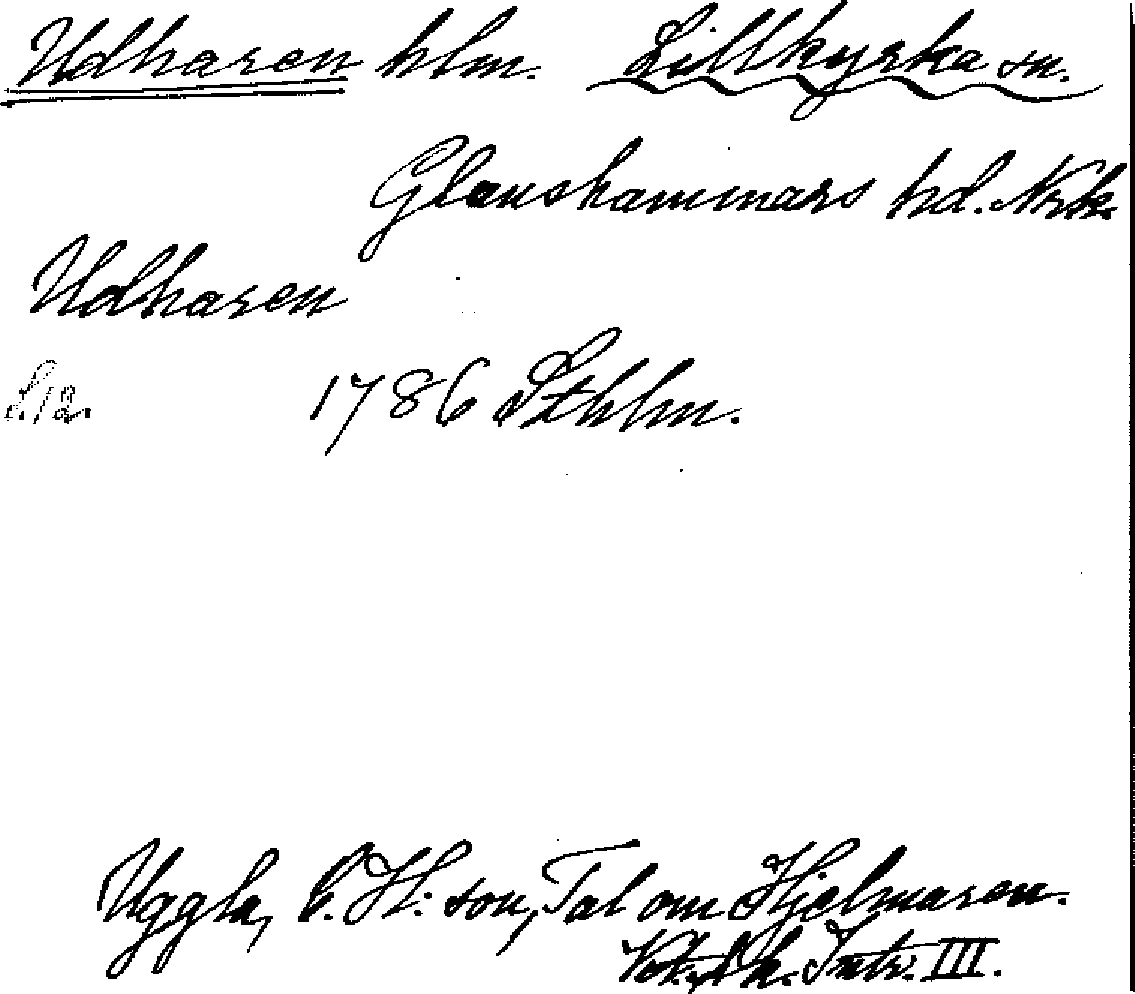 Udharen hlm. Lillkyrka sn.
Glanshammars hd. Nrk.
Udharen
S. 12. 1786 Sthlm.
Uggla, C. H:son, Tal om Hjelmaren.
Intr. III.